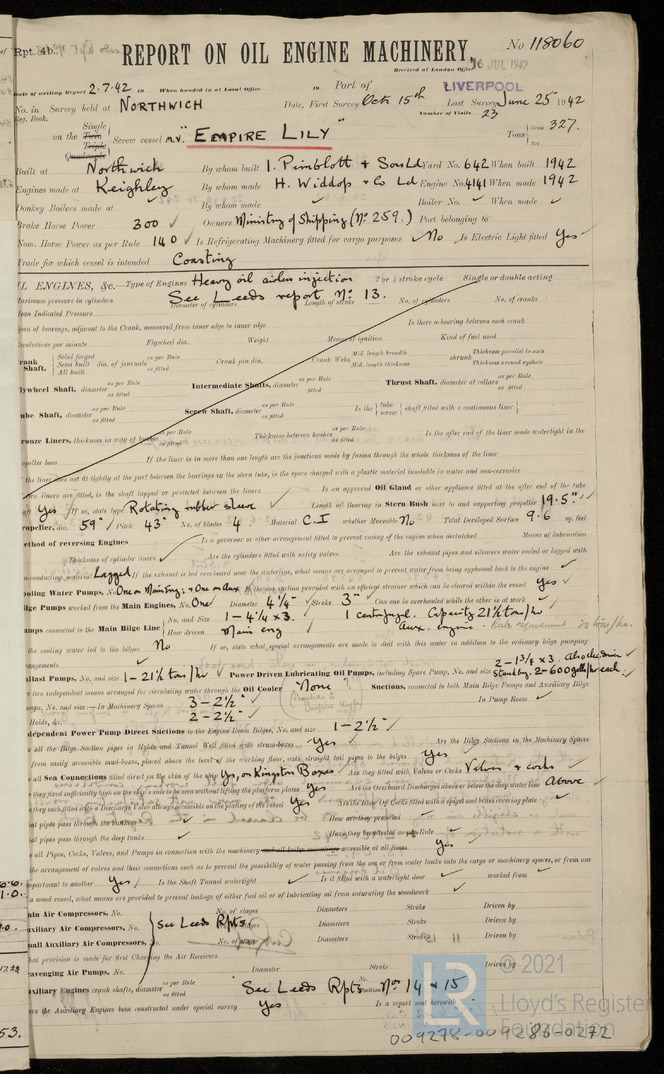 Rpt. 4b.
REPORT ON OIL ENGINE MACHINERY.
No 118060
16 JUL 1942
Received at London Office
Date of writing Report 2.7.42 When handed in at Local Office 19 Port of LIVERPOOL
No. in Survey held at NORTHWICH Date, First Survey Octr 15th Last Survey June 25 1942
Reg. Book. Number of Visits 23
on the Single Twin Triple Quadruple Screw vessel M.V. "EMPIRE LILY" Tons Gross 327. Net
Built at Northwich By whom built I. Pimblott & Sons Ld Yard No. 642 When built 1942
Engines made at Keighley By whom made H. Widdop & Co Ld Engine No. 4141 When made 1942
Donkey Boilers made at By whom made Boiler No. When made
Brake Horse Power 300 Owners Ministry of Shipping (No 259.) Port belonging to
Nom. Horse Power as per Rule 140 Is Refrigerating Machinery fitted for cargo purposes No Is Electric Light fitted Yes
Trade for which vessel is intended Coasting
IL ENGINES, &c. Type of Engines Heavy oil airless injection 2 or 4 stroke cycle Single or double acting
Maximum pressure in cylinders Diameter of cylinders Length of stroke No. of cylinders No. of cranks
See Leeds report No. 13.
an Indicated Pressure
pan of bearings, adjacent to the Crank, measured from inner edge to inner edge Is there a bearing between each crank
evolutions per minute Flywheel dia. Weight Means of ignition Kind of fuel used
rank Shaft, Solid forged Semi built All built dia. of journals as per Rule as fitted Crank pin dia. Crank Webs Mid. length breadth Mid. length thickness shrunk Thickness parallel to axis Thickness around eyehole
lywheel Shaft, diameter as per Rule as fitted Intermediate Shafts, diameter as per Rule as fitted Thrust Shaft, diameter at collars as per Rule as fitted
ube Shaft, diameter as per Rule as fitted Screw Shaft, diameter as per Rule as fitted Is the tube screw shaft fitted with a continuous liner
ronze Liners, thickness in way of bushes as per Rule as fitted Thickness between bushes as per Rule as fitted Is the after end of the liner made watertight in the
opeller boss If the liner is in more than one length are the junctions made by fusion through the whole thickness of the liner
the liner does not fit tightly at the part between the bearings in the stern tube, is the space charged with a plastic material insoluble in water and non-corrosive
liners are fitted, is the shaft lapped or protected between the liners Is an approved Oil Gland or other appliance fitted at the after end of the tube
aft Yes If so, state type Rotating rubber sleeve Length of Bearing in Stern Bush next to and supporting propeller 19.5"
ropeller, dia. 59" Pitch 43" No. of blades 4 Material C.I whether Moveable No Total Developed Surface 9.6 sq. feet
ethod of reversing Engines Is a governor or other arrangement fitted to prevent racing of the engine when declutched Means of lubrication
Thickness of cylinder liners Are the cylinders fitted with safety valves Are the exhaust pipes and silencers water cooled or lagged with
n-conducting material Lagged If the exhaust is led overboard near the waterline, what means are arranged to prevent water being syphoned back to the engine
ooling Water Pumps, No. One on Main Eng; & One on Aux Is the sea suction provided with an efficient strainer which can be cleared within the vessel Yes
ilge Pumps worked from the Main Engines, No. One Diameter 4 1/4" Stroke 3" Can one be overhauled while the other is at work
umps connected to the Main Bilge Line No. and Size 1 - 4 1/4 x 3. 1 centrifugal. Capacity 21 1/2 tons/hr
How driven Main eng Aux. engine. Rules requirement 20 tons/hr.
the cooling water led to the bilges No If so, state what special arrangements are made to deal with this water in addition to the ordinary bilge pumping
rangements
allast Pumps, No. and size 1 - 21 1/2 tons/hr Power Driven Lubricating Oil Pumps, including Spare Pump, No. and size 2 - 1 3/4 x 3. Also elec driven Standby. 2 - 600 galls/hr each.
two independent means arranged for circulating water through the Oil Cooler "None" Suctions, connected to both Main Bilge Pumps and Auxiliary Bilge
umps, No. and size:—In Machinery Spaces 3 - 2 1/2" In Pump Room
Holds, &c. 2 - 2 1/2"
dependent Power Pump Direct Suctions to the Engine Room Bilges, No. and size 1 - 2 1/2"
all the Bilge Suction pipes in Holds and Tunnel Well fitted with strum-boxes Yes Are the Bilge Suctions in the Machinery Spaces
from easily accessible mud-boxes, placed above the level of the working floor, with straight tail pipes to the bilges Yes
all Sea Connections fitted direct on the skin of the ship Yes, on Kingston Boxes Are they fitted with Valves or Cocks Valves & cocks
they fixed sufficiently high on the ship's side to be seen without lifting the platform plates Yes Are the Overboard Discharges above or below the deep water line Above
they each fitted with a Discharge Valve always accessible on the plating of the vessel Yes Are the Blow Off Cocks fitted with a spigot and brass covering plate
at pipes pass through the bunkers How are they protected
at pipes pass through the deep tanks Have they been tested as per Rule
all Pipes, Cocks, Valves, and Pumps in connection with the machinery and all boiler mountings accessible at all times Yes
the arrangement of valves and their connections such as to prevent the possibility of water passing from the sea or from water tanks into the cargo or machinery spaces, or from one
mpartment to another Yes Is the Shaft Tunnel watertight Is it fitted with a watertight door worked from
a wood vessel, what means are provided to prevent leakage of either fuel oil or lubricating oil from saturating the woodwork
ain Air Compressors, No. No. of stages Diameters Stroke Driven by
uxiliary Air Compressors, No. See Leeds Rpts. No. of stages Diameters Stroke Driven by
mall Auxiliary Air Compressors, No. No. of stages Diameters Stroke Driven by
hat provision is made for first Charging the Air Receivers
cavenging Air Pumps, No. Diameter Stroke Driven by
uxiliary Engines crank shafts, diameter as per Rule as fitted See Leeds Rpts. No. 14 & 15
ave the Auxiliary Engines been constructed under special survey Yes Is a report sent herewith
© 2021
LR
Lloyd's Register
Foundation
009278-009286-0272